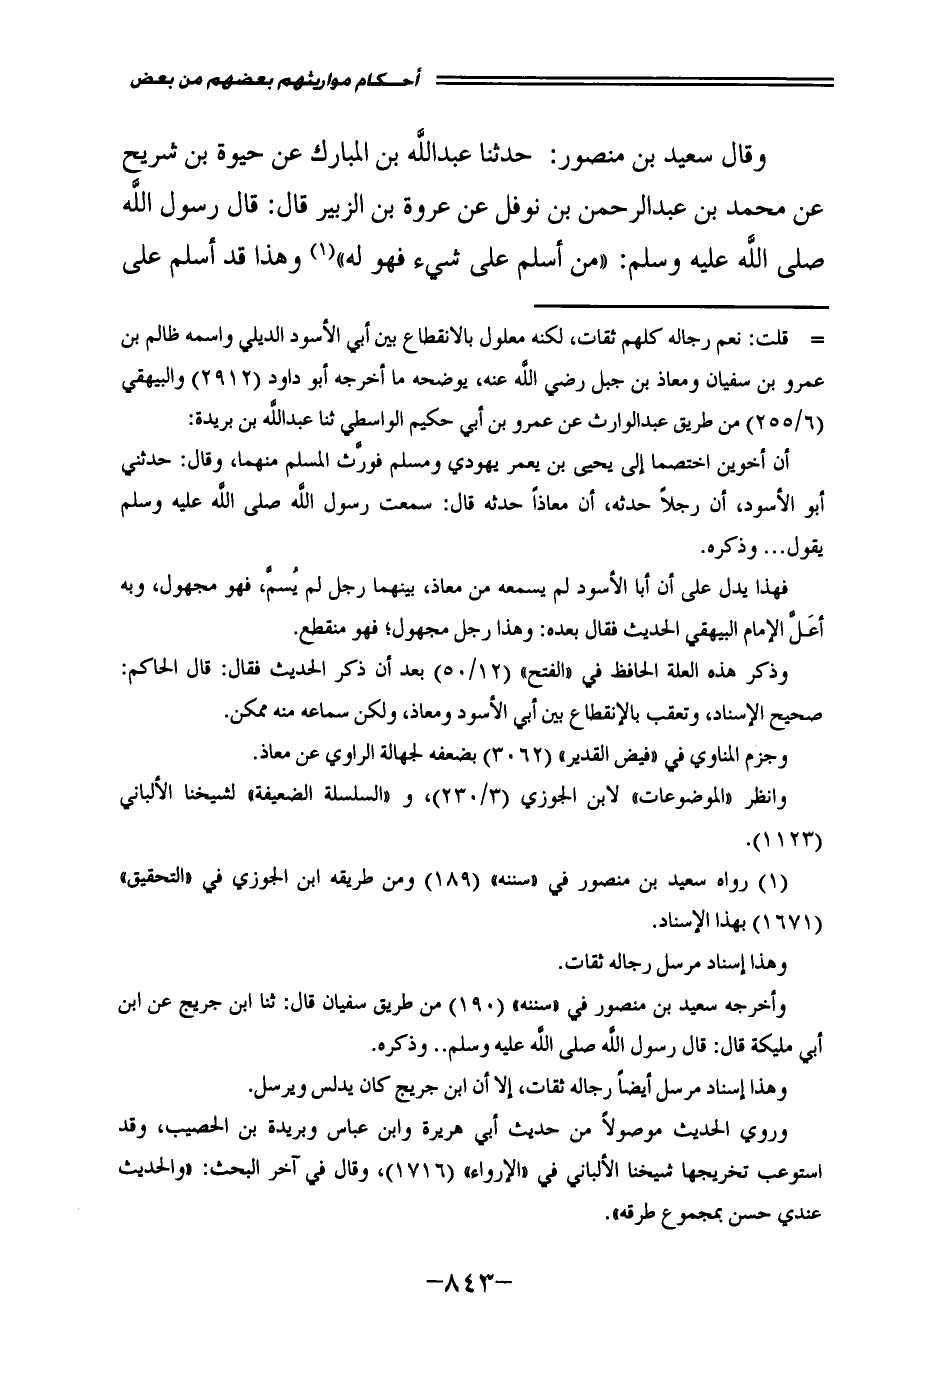 أحكام مواريثهم بعضهم من بعض
وقال سعيد بن منصور: حدثنا عبداللَّه بن المبارك عن حيوة بن شريح
عن محمد بن عبدالرحمن بن نوفل عن عروة بن الزبير قال: قال رسول اللَّه
صلى اللَّه عليه وسلم: «من أسلم على شيء فهو له»(١) وهذا قد أسلم على
= قلت: نعم رجاله كلهم ثقات، لكنه معلول بالانقطاع بين أبي الأسود الديلي واسمه ظالم بن
عمرو بن سفيان ومعاذ بن جبل رضي اللَّه عنه، يوضحه ما أخرجه أبو داود (٢٩١٢) والبيهقي
(٢٥٥/٦) من طريق عبدالوارث عن عمرو بن أبي حكيم الواسطي ثنا عبداللَّه بن بريدة:
أن أخوين اختصما إلى يحيى بن يعمر يهودي ومسلم فورَّث المسلم منهما، وقال: حدثني
أبو الأسود، أن رجلاً حدثه، أن معاذاً حدثه قال: سمعت رسول اللَّه صلى اللَّه عليه وسلم
يقول... وذكره.
فهذا يدل على أن أبا الأسود لم يسمعه من معاذ، بينهما رجل لم يُسمَّ، فهو مجهول، وبه
أعَلَّ الإمام البيهقي الحديث فقال بعده: وهذا رجل مجهول؛ فهو منقطع.
وذكر هذه العلة الحافظ في «الفتح» (٥٠/١٢) بعد أن ذكر الحديث فقال: قال الحاكم:
صحيح الإسناد، وتعقب بالإنقطاع بين أبي الأسود ومعاذ، ولكن سماعه منه ممكن.
وجزم المناوي في «فيض القدير» (٣٠٦٢) بضعفه لجهالة الراوي عن معاذ.
وانظر «الموضوعات» لابن الجوزي (٢٣٠/٣)، و «السلسلة الضعيفة» لشيخنا الألباني
(١١٢٣).
(١) رواه سعيد بن منصور في «سننه» (١٨٩) ومن طريقه ابن الجوزي في «التحقيق»
(١٦٧١) بهذا الإسناد.
وهذا إسناد مرسل رجاله ثقات.
وأخرجه سعيد بن منصور في «سننه» (١٩٠) من طريق سفيان قال: ثنا ابن جريج عن ابن
أبي مليكة قال: قال رسول اللَّه صلى اللَّه عليه وسلم.. وذكره.
وهذا إسناد مرسل أيضاً رجاله ثقات، إلا أن ابن جريج كان يدلس ويرسل.
وروي الحديث موصولاً من حديث أبي هريرة وابن عباس وبريدة بن الحصيب، وقد
استوعب تخريجها شيخنا الألباني في «الإرواء» (١٧١٦)، وقال في آخر البحث: «والحديث
عندي حسن بمجموع طرقه».
-٨٤٣-